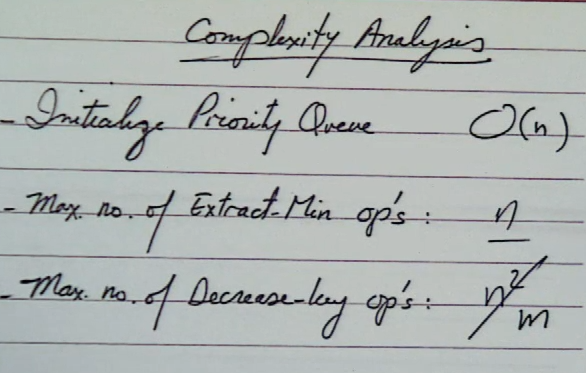 Complexity Analysis
- Initialize Priority Queue O(n)
- Max. no. of Extract-Min op's : n
- Max. no. of Decrease-key op's : n² m